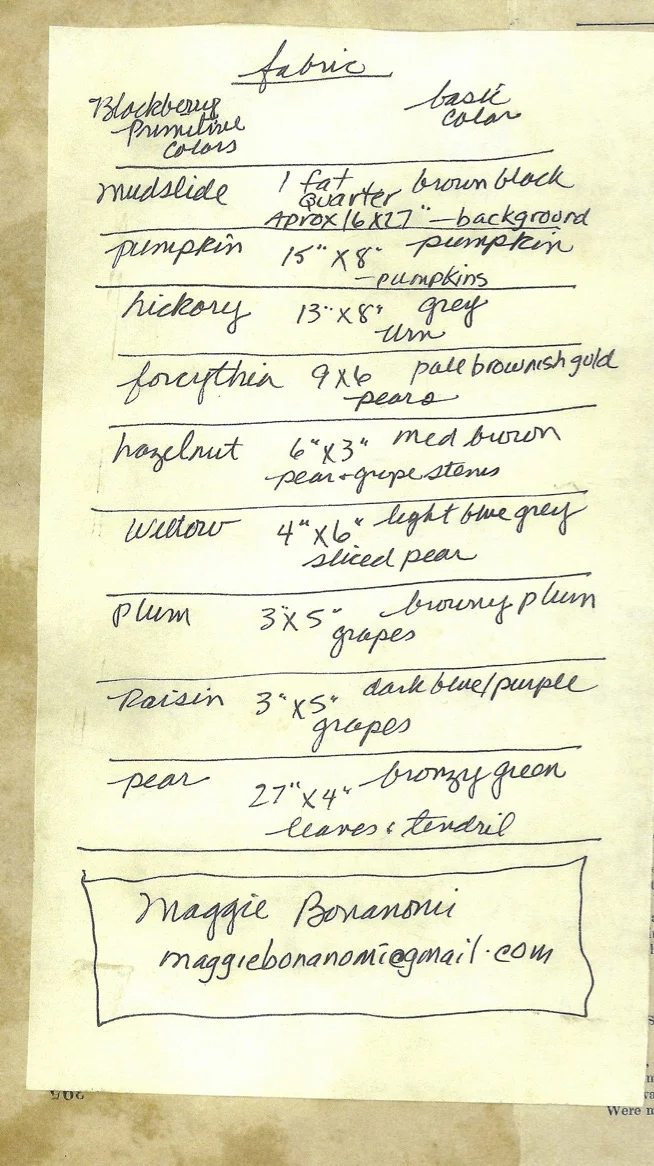 fabric
Blackberry basic
Primitive color
colors
mudslide 1 fat brown black
Quarter
Aprox 16 X 27" — background
pumpkin 15" X 8" pumpkin
— pumpkins
hickory 13" X 8" grey
urn
forcythia 9 X 6 pale brownish gold
pears
hazelnut 6" X 3" med brown
pear + grape stems
Willow 4" X 6" light blue grey
sliced pear
plum 3" X 5" browny plum
grapes
Raisin 3" X 5" dark blue/purple
grapes
pear 27" X 4" bronzy green
leaves & tendril
Maggie Bonanomi
maggiebonanomi@gmail.com
205
Were m